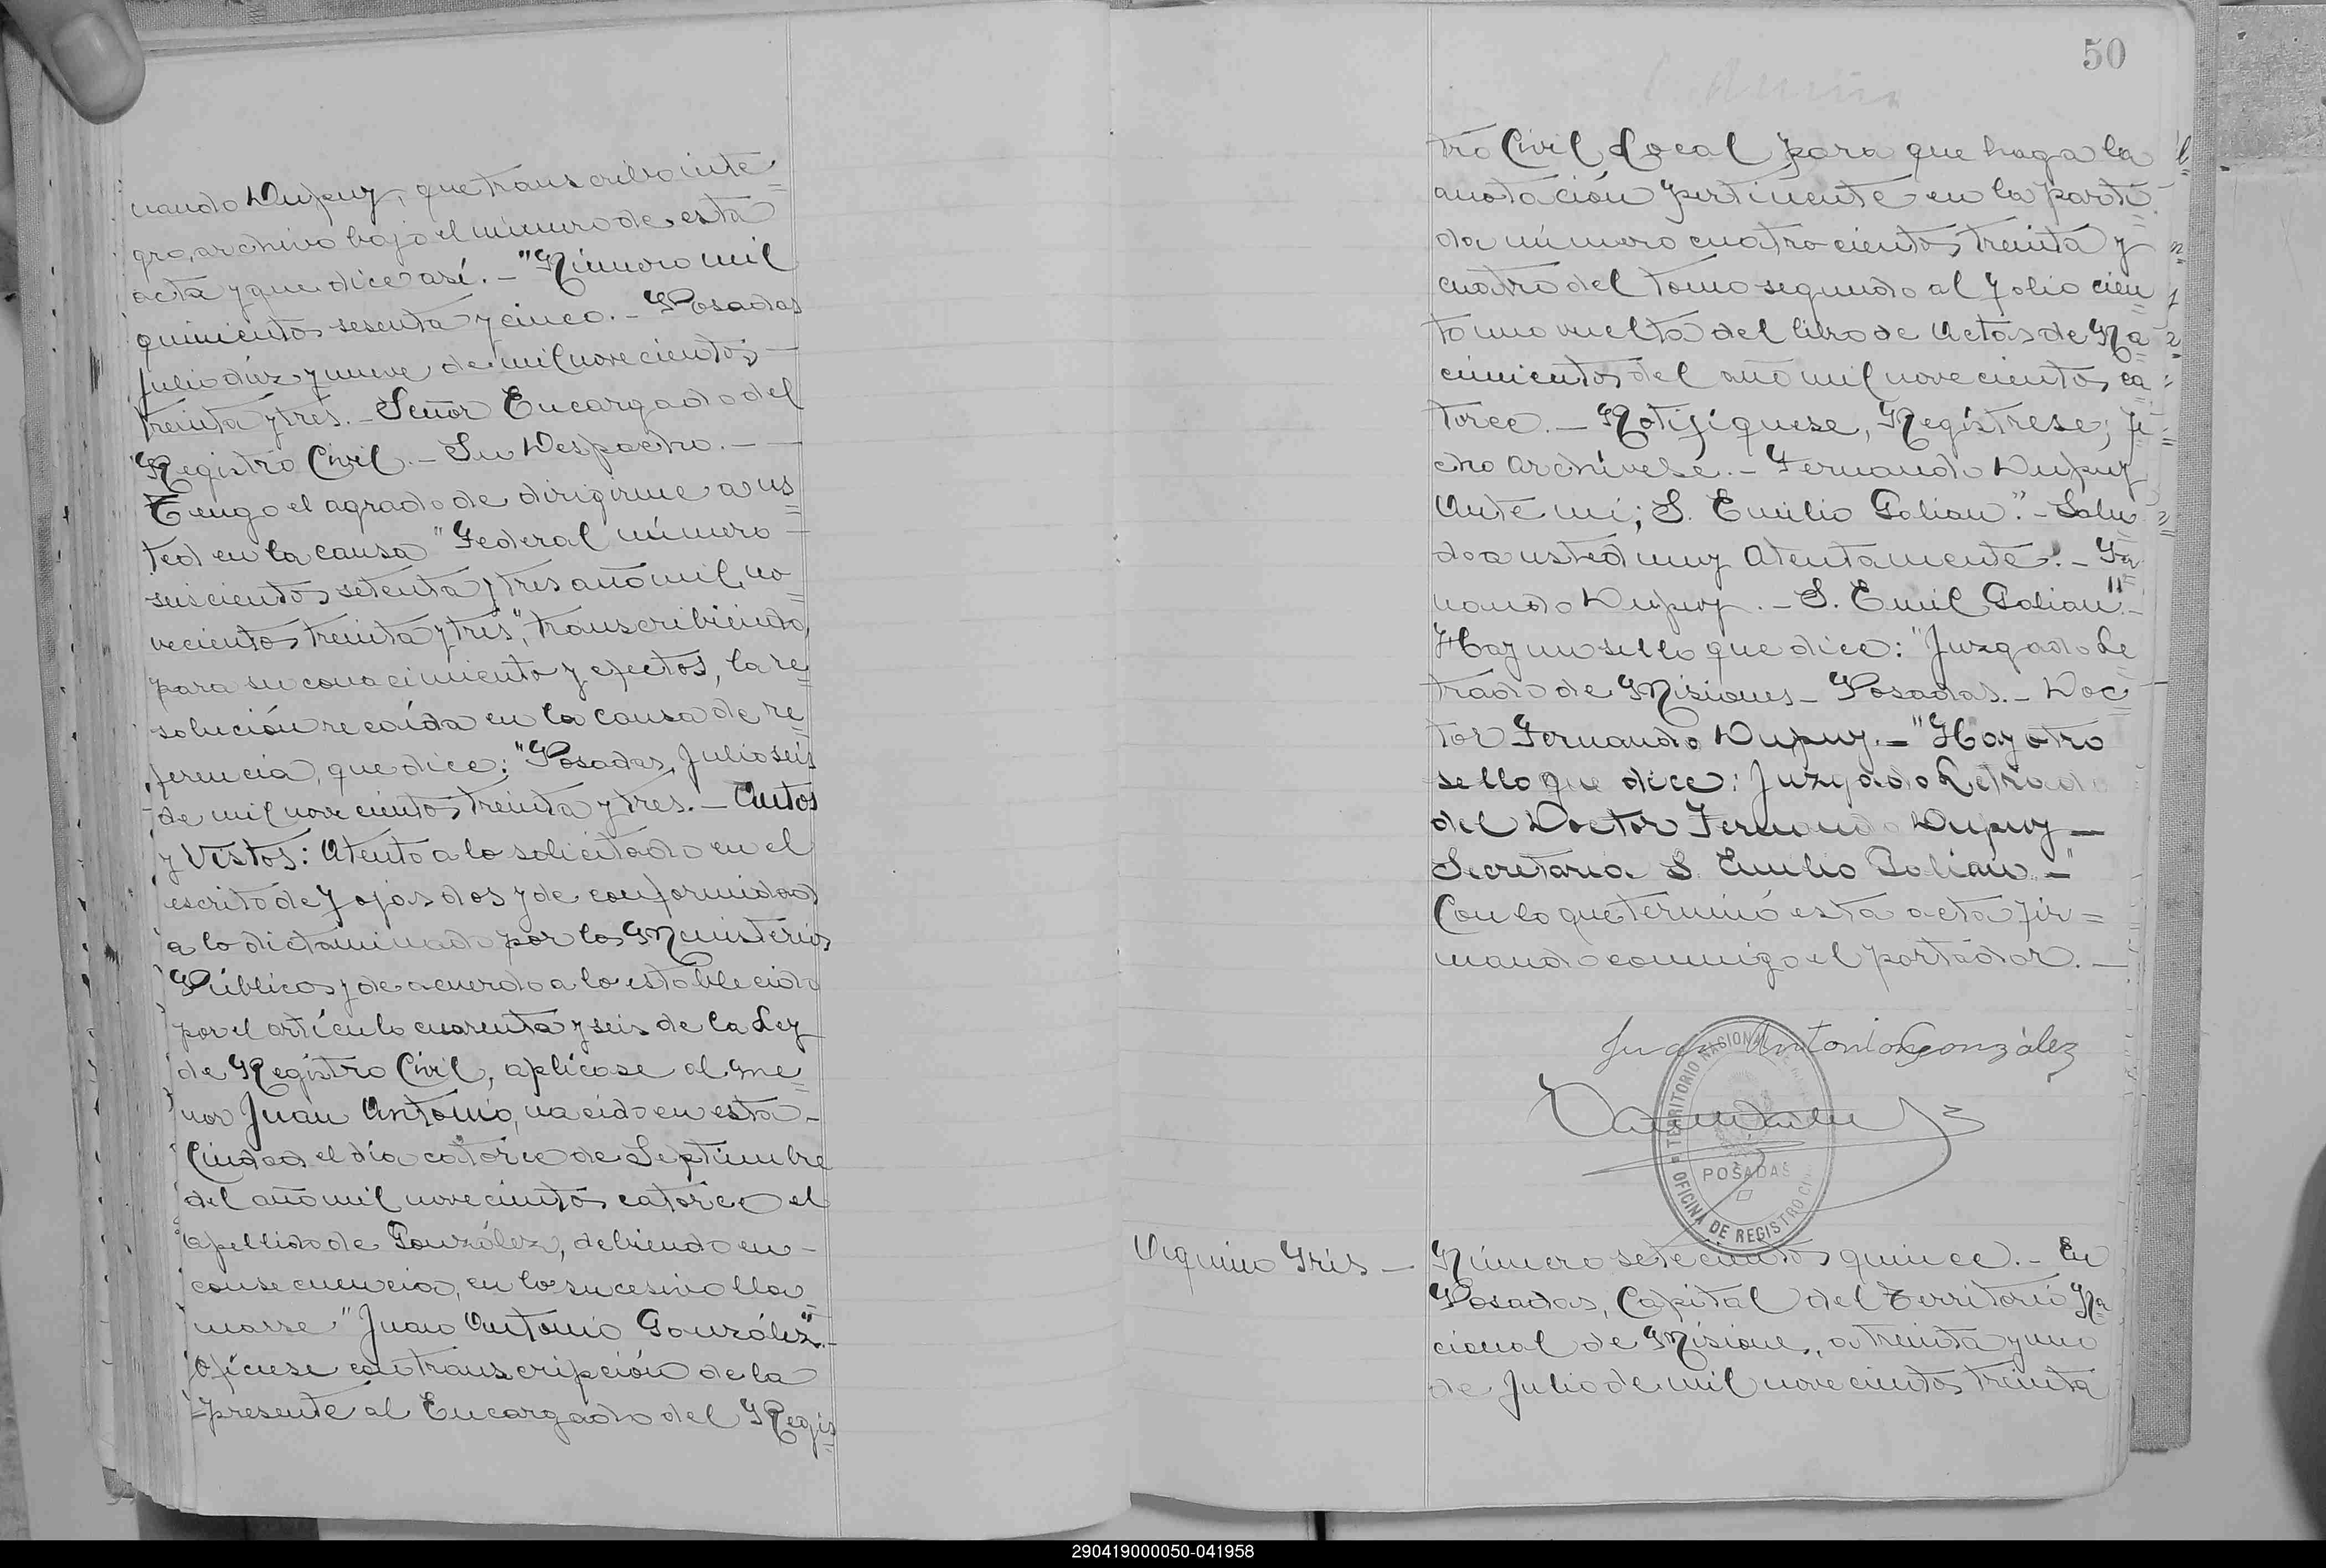 nando Dupuy, que transcribo ínte=
gro, archivo bajo el número de esta
acta y que dice así. - "Número mil
quinientos sesenta y cinco. - Posadas
Julio diez y nueve de mil novecientos
treinta y tres. - Señor Encargado del
Registro Civil. - Su Despacho. -
Tengo el agrado de dirigirme a us=
ted en la causa "Federal número
seiscientos setenta y tres año mil no=
vecientos treinta y tres", transcribiendo,
para su conocimiento y efectos, la re=
solución recaída en la causa de re=
ferencia, que dice: "Posadas, Julio seis
de mil novecientos treinta y tres. - Autos
y Vistos: Atento a lo solicitado en el
escrito de fojas dos y de conformidad
a lo dictaminado por los Ministerios
Públicos y de acuerdo a lo establecido
por el artículo cuarenta y seis de la Ley
de Registro Civil, aplícase al me=
nor Juan Antonio, nacido en esta -
Ciudad el día catorce de Septiembre
del año mil novecientos catorce el
apellido de González, debiendo en -
consecuencia, en lo sucesivo lla=
marse "Juan Antonio González". -
Ofíciese con transcripción de la
presente al Encargado del Regis=
50
tro Civil Local para que haga la
anotación pertinente en la parti=
da número cuatrocientos treinta y
cuatro del tomo segundo al folio cien
to uno vuelta del libro de Actas de Na=
cimientos del año mil novecientos ca=
torce. - Notifíquese, Regístrese, fe=
cho archívese. - Fernando Dupuy
Ante mí; S. Emilio Golian". - Salu=
do a usted muy Atentamente. - Fer=
nando Dupuy. - S. Emil Golian". -
Hay un sello que dice: "Juzgado Le=
trado de Misiones - Posadas. - Doc=
tor Fernando Dupuy. - "Hay otro
sello que dice: Juzgado Letrado
del Doctor Fernando Dupuy -
Secretaria S. Emilio Golian. -"
Con lo que terminó esta acta fir=
mando conmigo el portador. -
Juan Antonio González
TERRITORIO NACIONAL DE
POSADAS
OFICINA DE REGISTRO CIVIL
Aquino Gris - Número setecientos quince. - En
Posadas, Capital del Territorio Na=
cional de Misiones, a treinta y uno
de Julio de mil novecientos treinta
290419000050-041958